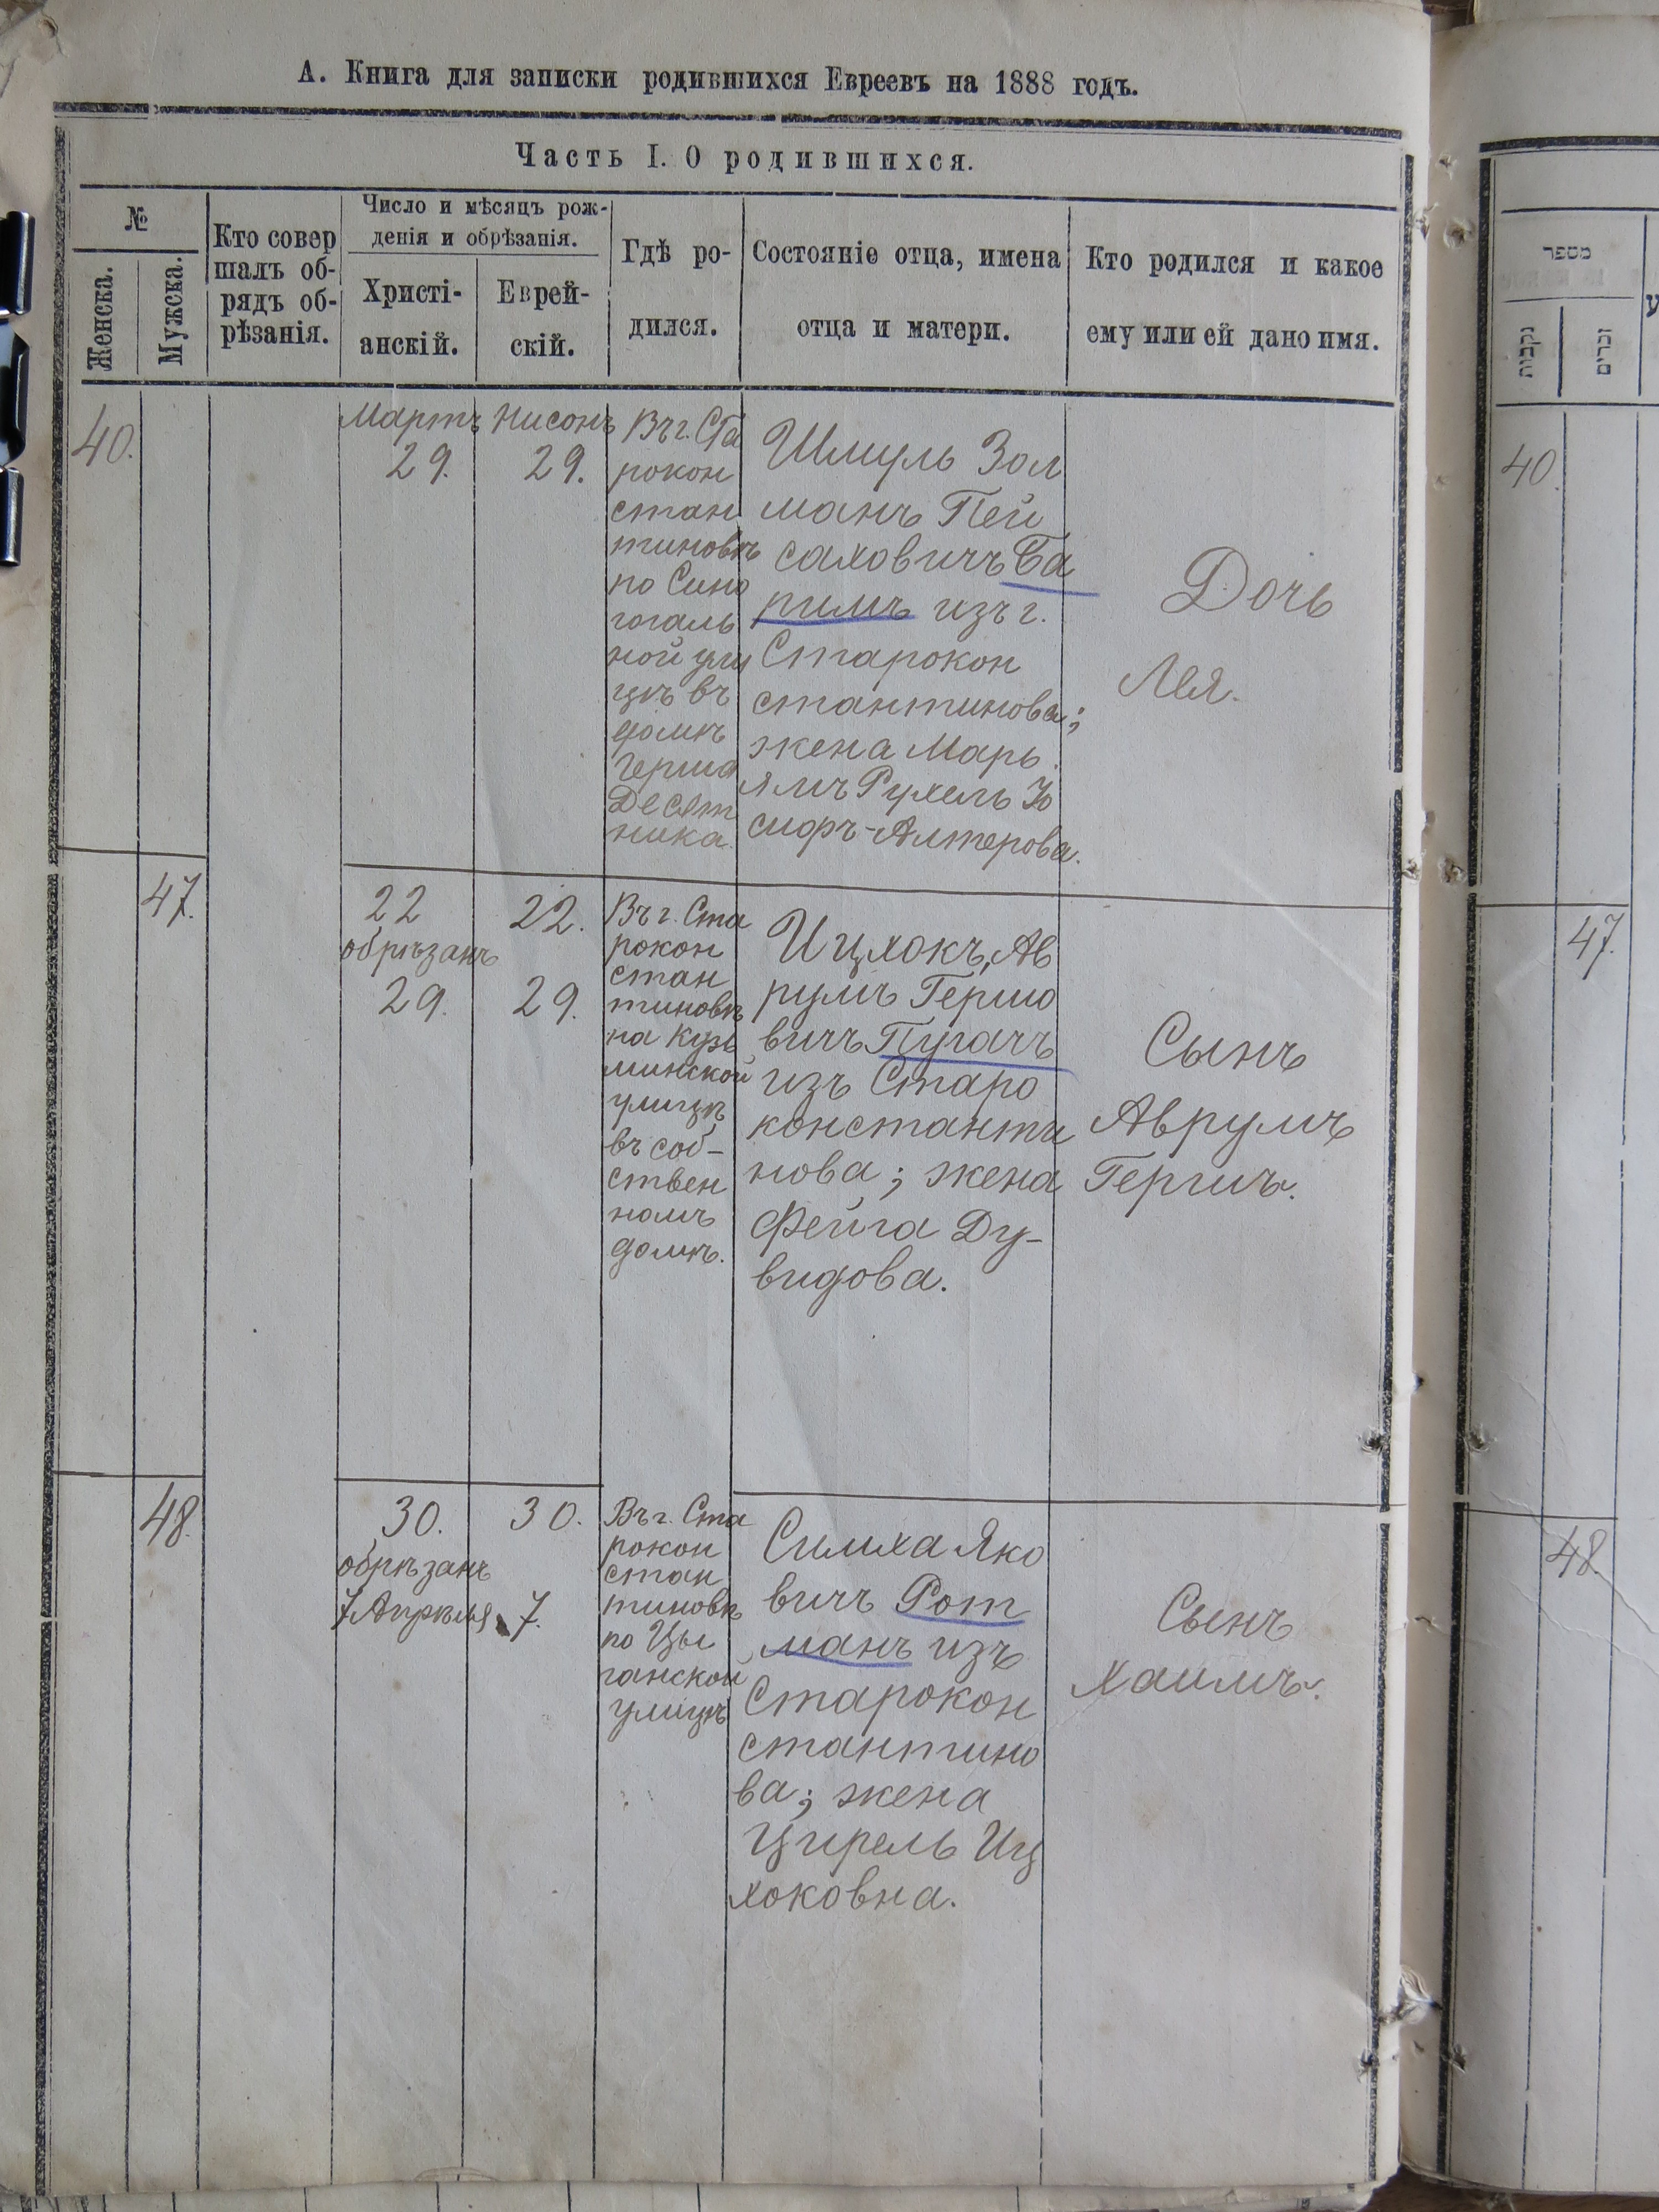 А. Книга для записки родившихся Евреевъ на 1888 годъ.
Часть I. О родившихся.
№
Женска.
Мужска.
Кто совер
шалъ об-
рядъ об-
рѣзанія.
Число и мѣсяцъ рож-
денія и обрѣзанія.
Христі-
анскій.
Еврей-
скій.
Гдѣ ро-
дился.
Состояніе отца, имена
отца и матери.
Кто родился и какое
ему или ей дано имя.
40.
Мартъ
29.
Нисонъ
29.
Въ г. Ста
рокон
стан
тиновѣ
по Сино
гогаль
ной ули
цѣ въ
домѣ
Герша
Десят
ника.
Шмуль Зол
манъ Пей
саховичъ Ба
римъ изъ г.
Старокон
стантинова;
жена Марь
ямъ Рухель Іо
сифъ-Алтерова.
Дочь
Лея.
47.
22
обрѣзанъ
29.
22.
29.
Въ г. Ста
рокон
стан
тиновѣ
на Кузь
минской
улицѣ
въ соб-
ствен
номъ
домѣ.
Ицхокъ, Ав
румъ Гершо
вичъ Пугачъ
изъ Старо
константи
нова; жена
Фейга Ду-
видова.
Сынъ
Аврумъ
Гершъ.
48.
30.
обрѣзанъ
7 Апрѣля
30.
7.
Въ г. Ста
рокон
стан
тиновѣ
по Цы
ганской
улицѣ
Симха Яко
вичъ Рот
манъ изъ
Старокон
стантино
ва; жена
Цирель Иц
хоковна.
Сынъ
Хаимъ.
מספר
נקבות
זכרים
40.
47.
48.